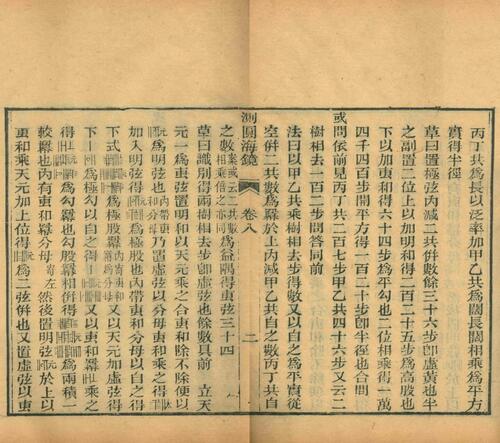 丙丁共爲長以泛率加甲乙共爲闊長闊相乘爲平方
實得半徑
草曰置極弦内減二共併數餘三十六步卽虛黃也半
之副置二位上以加明和得二百二十五步爲高股也
下以加叀和得六十四步爲平勾也二位相乘得一萬
四千四百步開平方得一百二十步卽半徑也合問
或問依前見丙丁共二百七步甲乙共四十六步又云二
樹相去一百二步問答同前
法曰以甲乙共乘樹相去步得數又以自之爲平實從
測圓海鏡 卷八 二
空併二共數爲冪於上内減甲乙共自之數丙丁共自
之數案或云二共數相乘倍之亦同爲益隅得叀弦三十四
草曰識別得兩樹相去步卽虛弦也餘數具前 立天
元一爲叀弦置明和以天元乘之合叀和除不除便以
爲明弦也内帶叀和分母乃置虛弦以分母叀和乘之得
加入明弦得爲極股也内帶叀和分母以自之得
下式爲極股冪内寄叀和冪爲分母又以天元加虛弦得
下爲極勾以自之得又以叀和冪乘之
得爲勾冪也勾股冪相併得爲兩積一
較冪也内有叀和冪分母寄左然後置明弦於上以
叀和乘天元加上位得爲二弦併也又置虛弦以叀